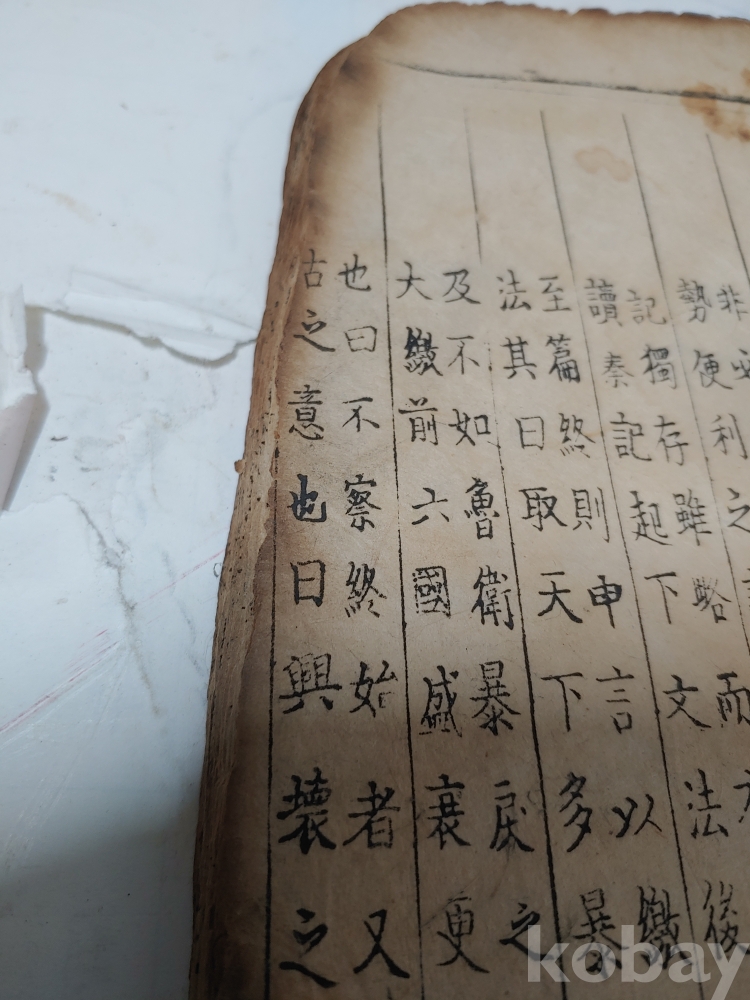 非
勢便利之
記獨存雖略而
讀秦記起下文法後
至篇終則申言以繳
法其曰取天下多暴
及不如魯衛暴戾之
大繳前六國盛衰更
也曰不察終始者又
古之意也曰興壞之
kobay